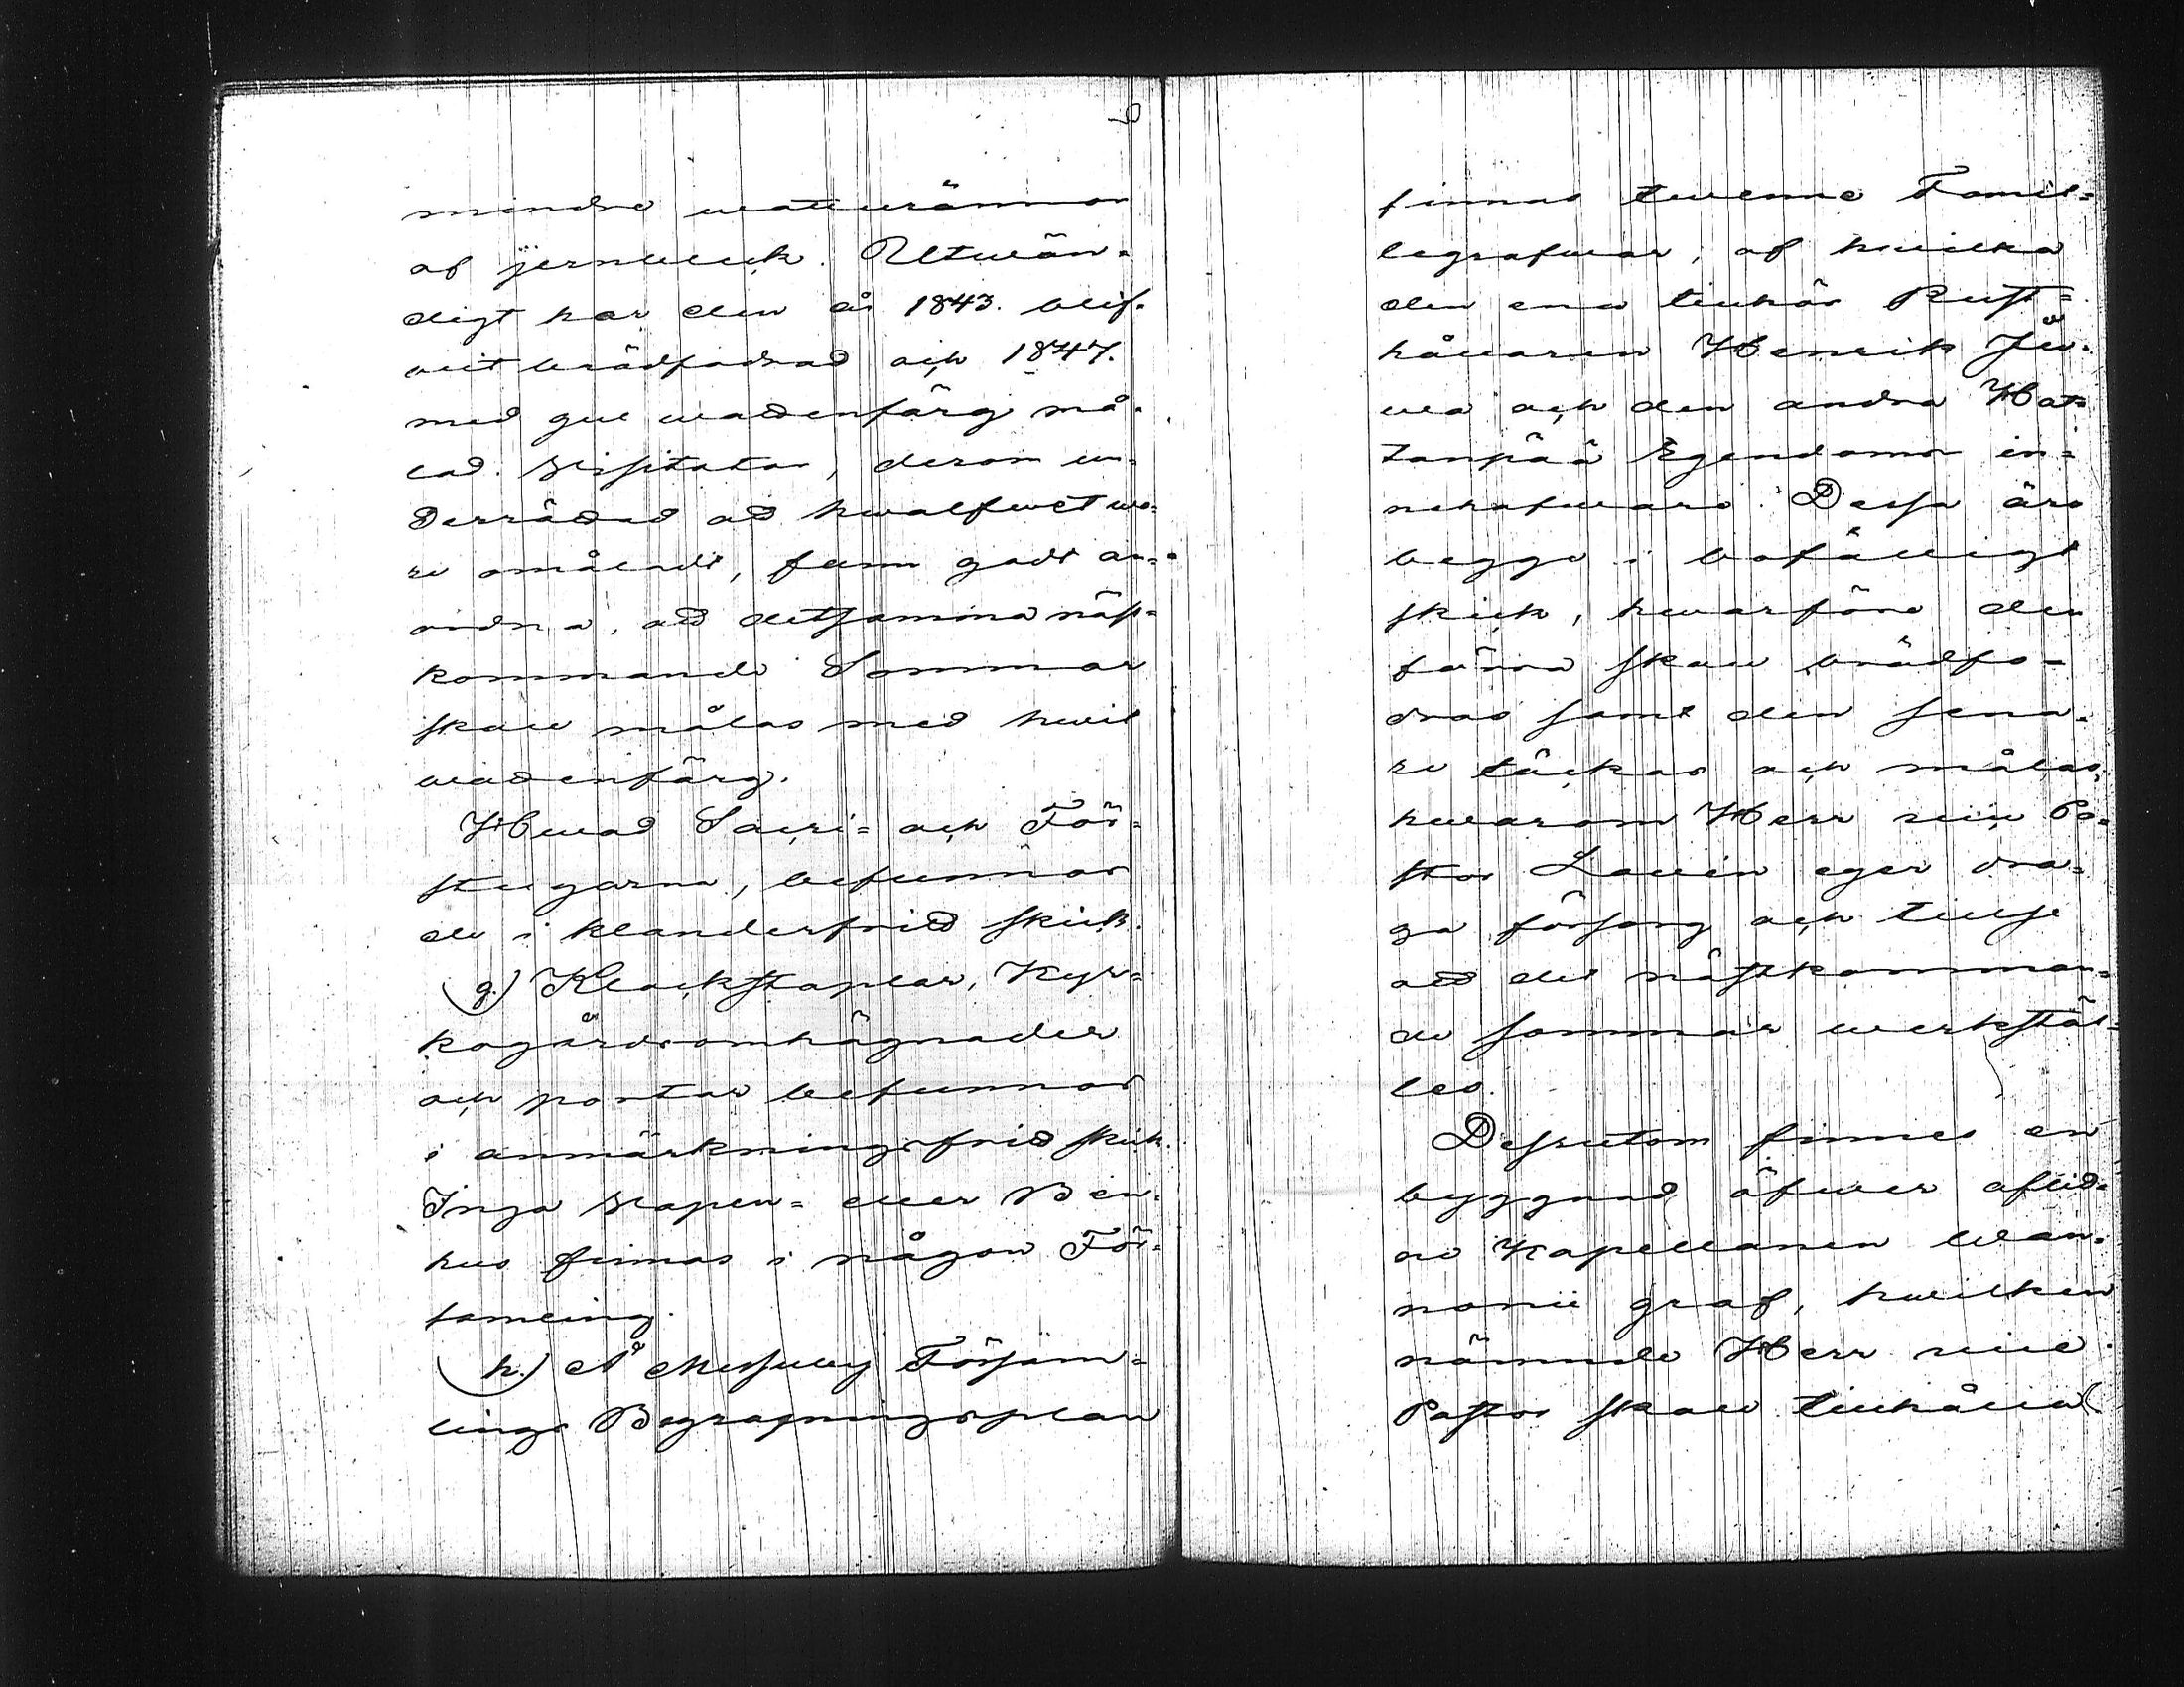 6
mindre vatturännor
af jernbleck. Utwän-
digt har den år 1843. blif-
vit brädfodrad och 1847.
med gul wattenfärg må-
lad. Visitator, derom un-
derrättad att hwalfwet wo-
re omåladt, fann godt an-
ordna, att detsamma näst-
kommande Sommar
skall målas med hwit
wattenfärg.
Hwad Sacri= och För-
stugorna, befunnos
de i klanderfritt skick.
g.) Klockstaplar, Kyr-
kogårdsomhägnader
och portar befunnos
i anmärkningsfritt skick.
Inga Vapen= eller Ben-
hus finnas i någon För-
samling.
h.) Å Messuby Försam-
lings Begrafningsplan
finnas twenne Famil-
legrafwar, af hwilka
den ena tillhör Rust-
hållaren Henrik
och den andra Hat-
tanpää Egendoms in-
nehafware. Dessa äro
begge i bofälligt
skick, hwarföre den
förra skall brädfo-
dras samt den sena-
re täckas och målas,
hwarom Herr vice Pa-
stor Lavén eger dra-
ga försorg och tillse
att det nästkomman-
de sommar werkstäl-
les.
Dessutom finnes en
byggnad öfwer aflid-
ne Kapellanen Wan-
nonii graf, hwilken
nämnde Herr vice
Pastor skall tillhålla